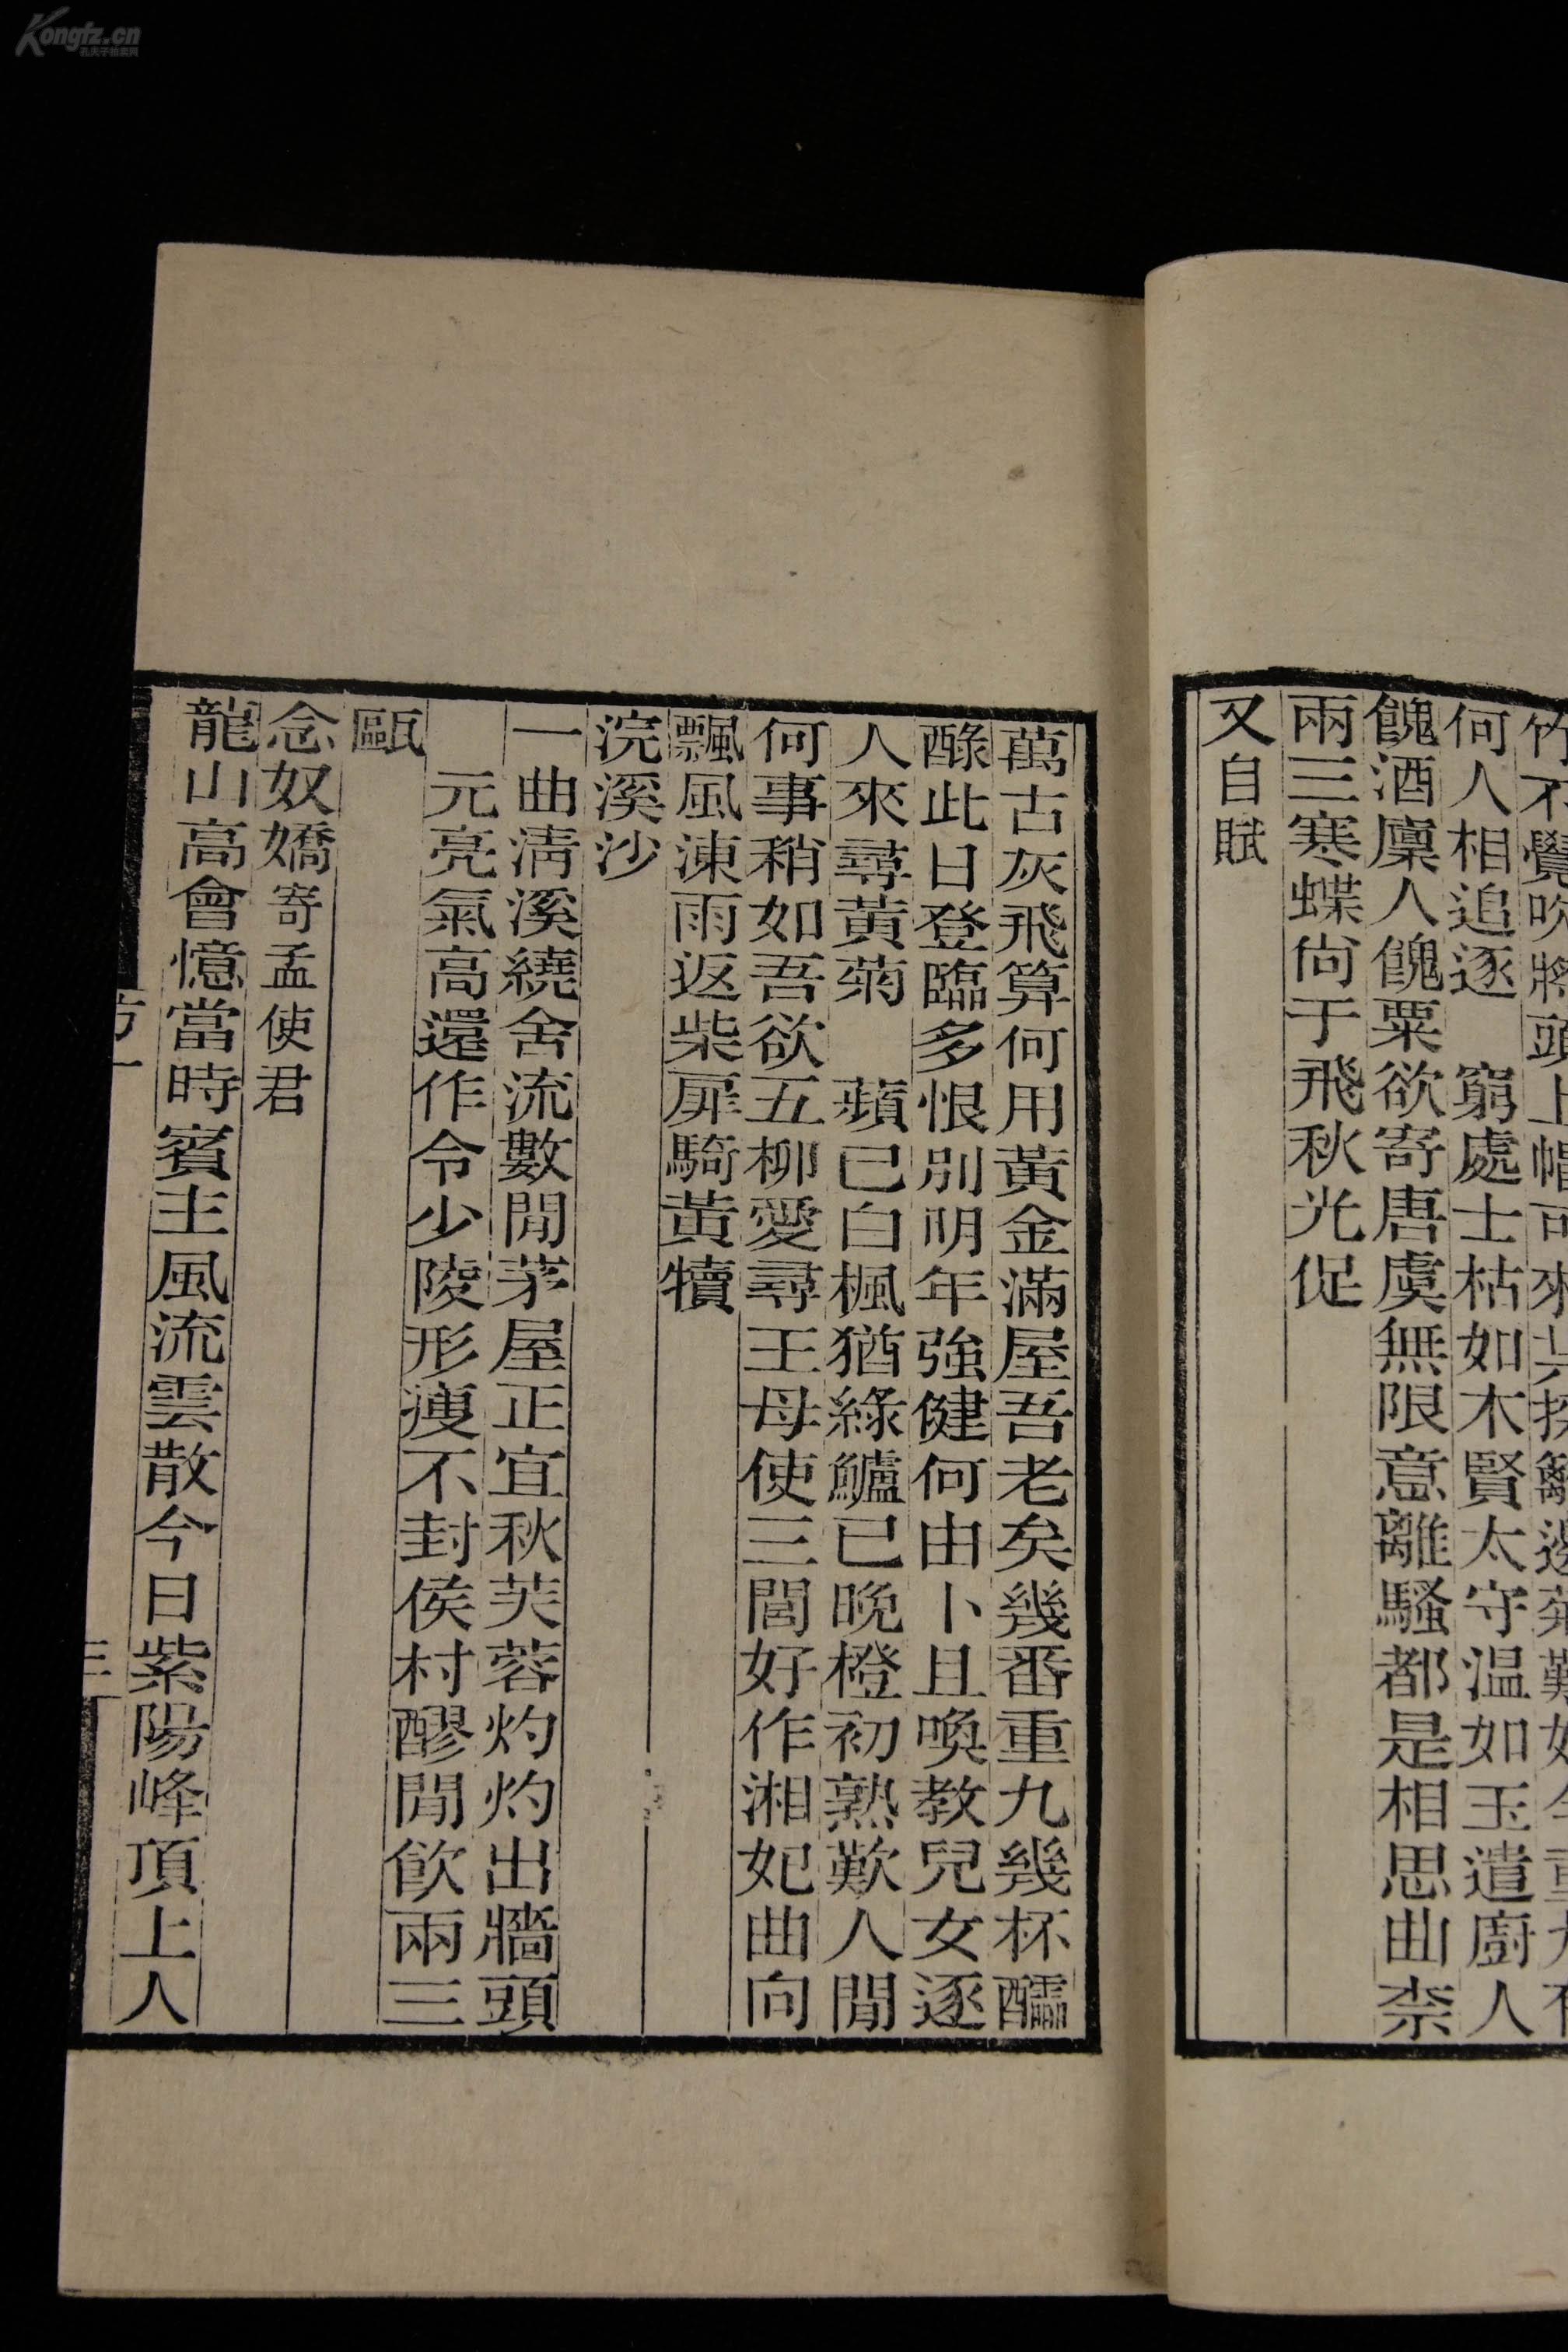 Kongfz.cn
孔夫子拍卖网
何人相追逐　窮處士枯如木賢太守温如玉遣廚人
餽酒廩人餽粟欲寄唐虞無限意離騷都是相思曲柰
兩三寒蝶尙于飛秋光促
又自賦
萬古灰飛算何用黃金滿屋吾老矣幾番重九幾杯醽
醁此日登臨多恨別明年強健何由卜且喚敎兒女逐
人來尋黃菊　蘋已白楓猶綠鱸已晚橙初熟歎人閒
何事稍如吾欲五柳愛尋王母使三閭好作湘妃曲向
飄風涷雨返柴扉騎黃犢
浣溪沙
一曲淸溪繞舍流數閒茅屋正宜秋芙蓉灼灼出牆頭
元亮氣高還作令少陵形瘦不封侯村醪閒飮兩三
甌
念奴嬌寄孟使君
龍山高會憶當時賓主風流雲散今日紫陽峰頂上人
三